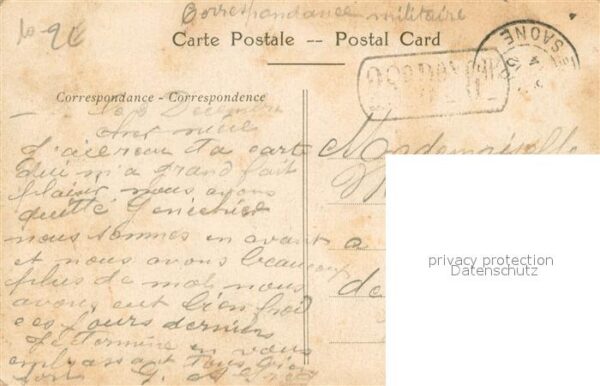 10-9E
Correspondance militaire
Carte Postale -- Postal Card
SAONE
Correspondance - Correspondence
le 8 Decembre
cher
J'ai recu ta carte
qui m'a grand fait
plaisir nous avons
quitté
nous sommes en avant
et nous avons beaucoup
plus de mal nous
avons eut bien froid
ces jours derniers
Je termine en vous
embrassant tous bien
Mademoiselle
a
de
privacy protection
Datenschutz